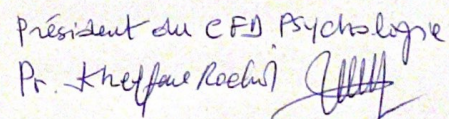 Président du CFD Psychologie
Pr. Kheffache Rachid